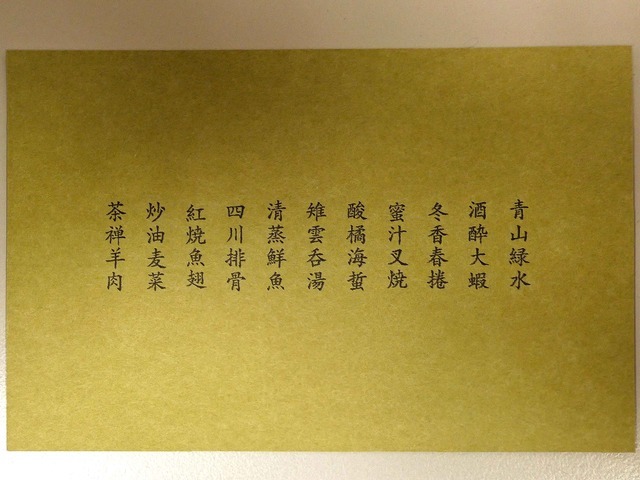 青山緑水
酒酔大蝦
冬香春捲
蜜汁叉焼
酸橘海蜇
雉雲呑湯
清蒸鮮魚
四川排骨
紅焼魚翅
炒油麦菜
茶禅羊肉